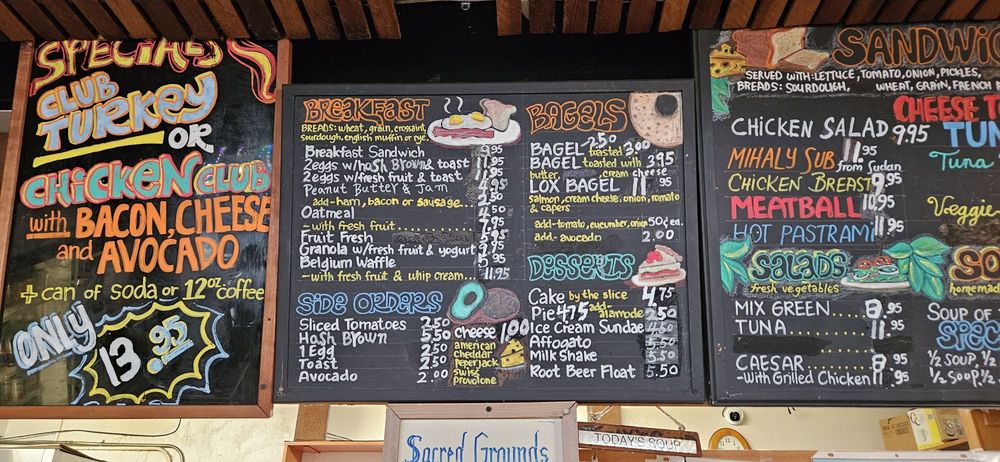 SPECIALS
CLUB
TURKEY
OR
CHICKEN CLUB
with BACON, CHEESE
and AVOCADO
+ can of soda or 12oz coffee
ONLY 13.95
BREAKFAST
BREADS: wheat, grain, crossaint,
sourdough, english muffin or rye.
Breakfast Sandwich
2eggs w/hash Brown toast 11.95
2eggs w/fresh fruit & toast 11.95
Peanut Butter & Jam 4.95
add-ham, bacon or sausage... 2.50
Oatmeal 4.50
-with fresh fruit
Fruit Fresh
Granola w/fresh fruit & yogurt
Belgium Waffle
-with fresh fruit & whip cream... 11.95
SIDE ORDERS
Sliced Tomatoes 2.50
Hash Brown 5.50
1 Egg 2.50
Toast 2.50
Avocado 2.00
Cheese 1.00
american
cheddar
pepperjack
swiss
provolone
BAGELS
BAGEL 2.50
BAGEL toasted 3.00
BAGEL toasted with 3.95
butter, cream cheese
LOX BAGEL 11.95
salmon, cream cheese, onion, tomato
& capers
add-tomato, cucumber, onion 50¢ ea.
add-avocado 2.00
DESSERTS
Cake by the slice 4.75
Pie 4.75 add alamode 2.50
Ice Cream Sundae
Affogato 5.50
Milk Shake 5.50
Root Beer Float 5.50
SANDWIC
SERVED WITH: LETTUCE, TOMATO, ONION, PICKLES,
BREADS: SOURDOUGH, WHEAT, GRAIN, FRENCH
CHEESE T
CHICKEN SALAD 9.95
TUN
MIHALY SUB 11.95 from Sudan
Tuna
CHICKEN BREAST 9.95
MEATBALL 10.95
Veggie
HOT PASTRAMI 11.95
SALADS
fresh vegetables
MIX GREEN 8.95
TUNA 11.95
CAESAR 8.95
-With Grilled Chicken 11.95
SO
homemad
SOUP OF
SPEC
½ SOUP ½
½ SOUP ½
Sacred Grounds
TODAY'S SOUP